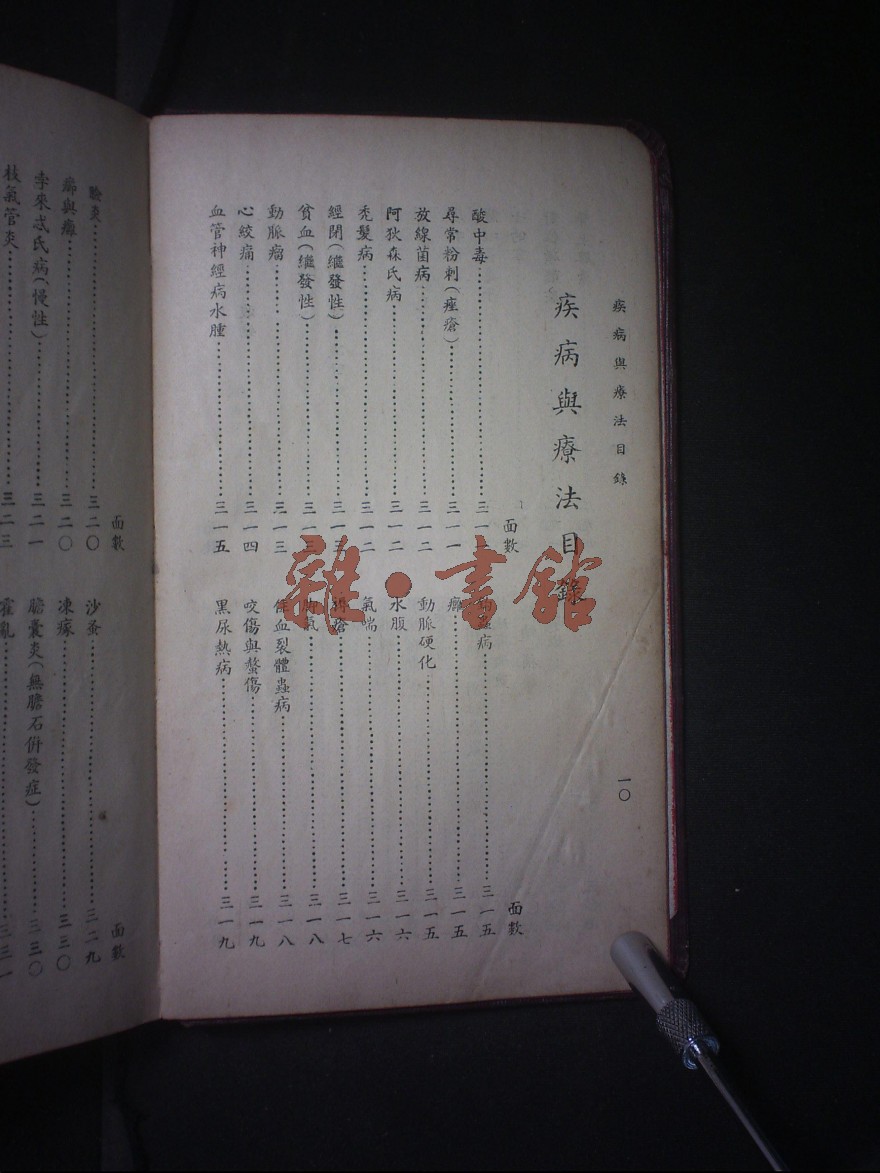 疾病與療法目錄
一〇
疾病與療法目錄
面數
酸中毒 三一
尋常粉刺(痤瘡) 三一一
放線菌病 三一二
阿狄森氏病 三一二
禿髮病 三一二
經閉(繼發性) 三一三
貧血(繼發性) 三一三
動脈瘤 三一三
心絞痛 三一四
血管神經病水腫 三一五
面數
蟲病 三一五
三一五
動脈硬化 三一五
水腹 三一六
氣喘 三一六
瘡 三一七
氣 三一八
住血裂體蟲病 三一八
咬傷與螫傷 三一九
黑尿熱病 三一九
雜·書館
面數
臉炎 三二〇
癤與癰 三二〇
李來忒氏病(慢性) 三二一
枝氣管炎 三二三
面數
沙蚤 三二九
凍瘃 三三〇
膽囊炎(無膽石併發症) 三三〇
霍亂 三三一